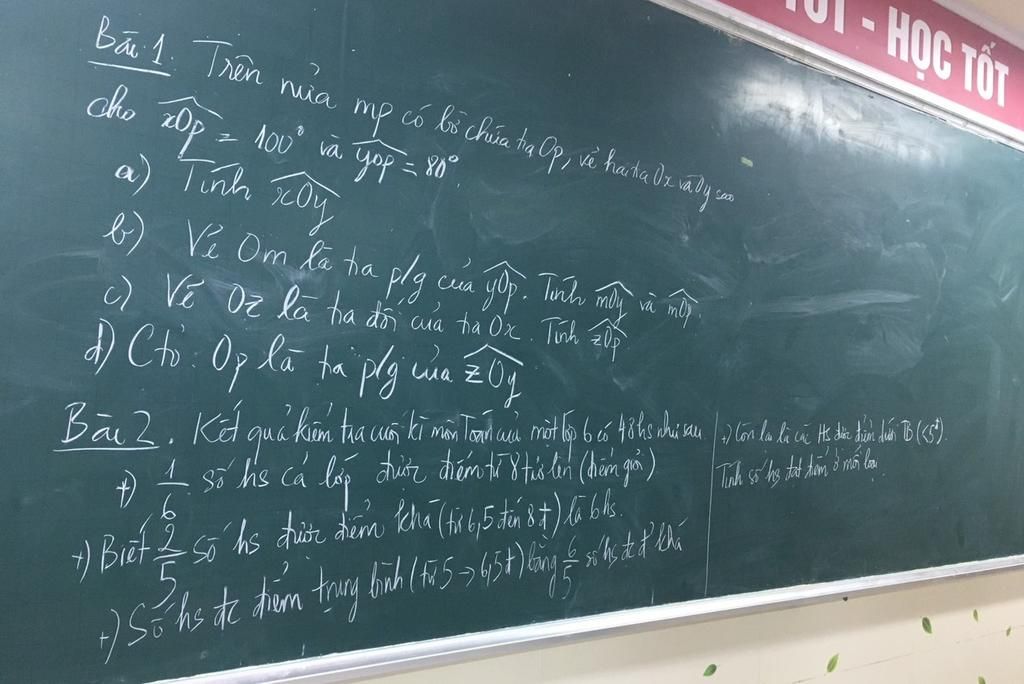 TỐT - HỌC TỐT
Bài 1. Trên nửa mp có bờ chứa tia Op, vẽ hai tia Ox và Oy sao
cho xOp = 100° và yOp = 80°.
a) Tính xOy
b) Vẽ Om là tia p/g của yOp. Tính mOy và mOp.
c) Vẽ Oz là tia đối của tia Ox. Tính zOp
d) Ctỏ. Op là tia p/g của zOy
Bài 2. Kết quả kiểm tra cuối kì môn Toán của một lớp 6 có 48 hs như sau
+) 1/6 số hs cả lớp được điểm từ 8 trở lên (điểm giỏi)
+) Biết 2/5 số hs được điểm khá (từ 6,5 đến 8đ) là 6 hs.
+) Số hs đc điểm trung bình (từ 5 → 6,5đ) bằng 6/5 số hs đc đ khá
+) Còn lại là các Hs được điểm dưới TB (<5đ).
Tính số hs đạt điểm ở mỗi loại